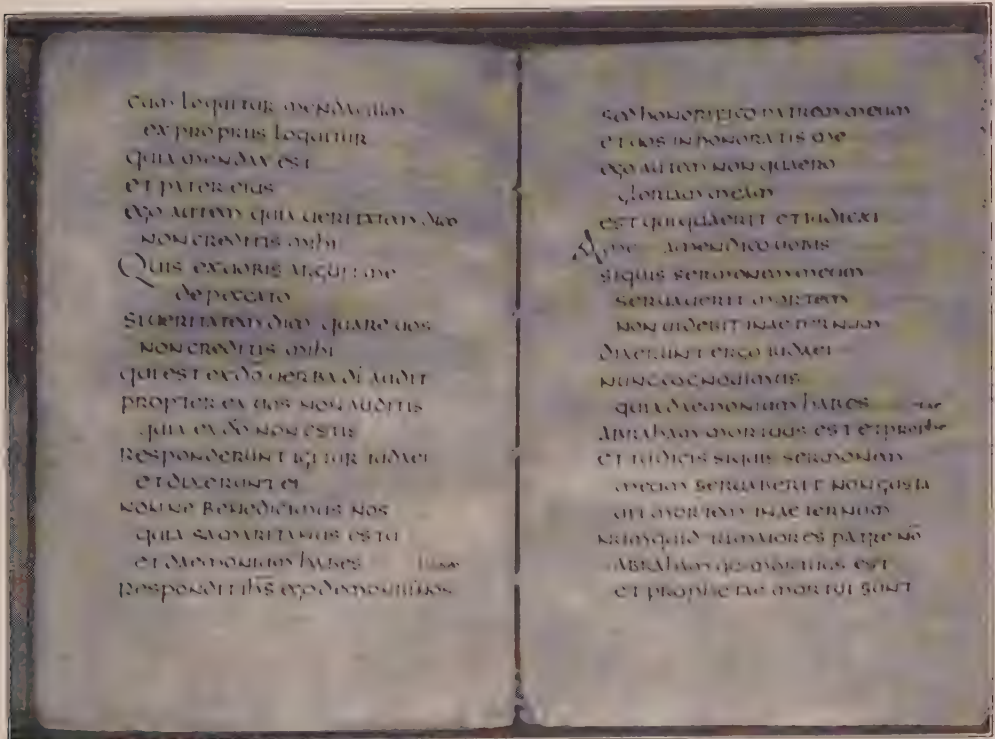 cum loquitur mendacium
ex propriis loquitur
quia mendax est
et pater eius
ego autem quia ueritatem dico
non creditis mihi
Quis ex uobis arguit me
de peccato
Si ueritatem dico quare uos
non creditis mihi
qui est ex dō uerba dī audit
propter ea uos non auditis
quia ex dō non estis
Responderunt igitur iudaei
et dixerunt ei
nonne benedicimus nos
quia samaritanus es tu
et daemonium habes
Respondit ihs ego demonium nos
sed honorifico patrem meum
et uos inhonoratis me
ego autem non quaero
gloriam meam
est qui quaerit et iudicat
Amen amen dico uobis
siquis sermonem meum
seruauerit mortem
non uidebit in aeternum
dixerunt ergo iudaei
nunc cognouimus
quia daemonium habes
Abraham mortuus est et prophe
et tu dicis siquis sermonem
meum seruaberit non gusta
uit mortem in aeternum
numquid tu maior es patre nō
Abraham qui mortuus est
et prophetae mortui sunt